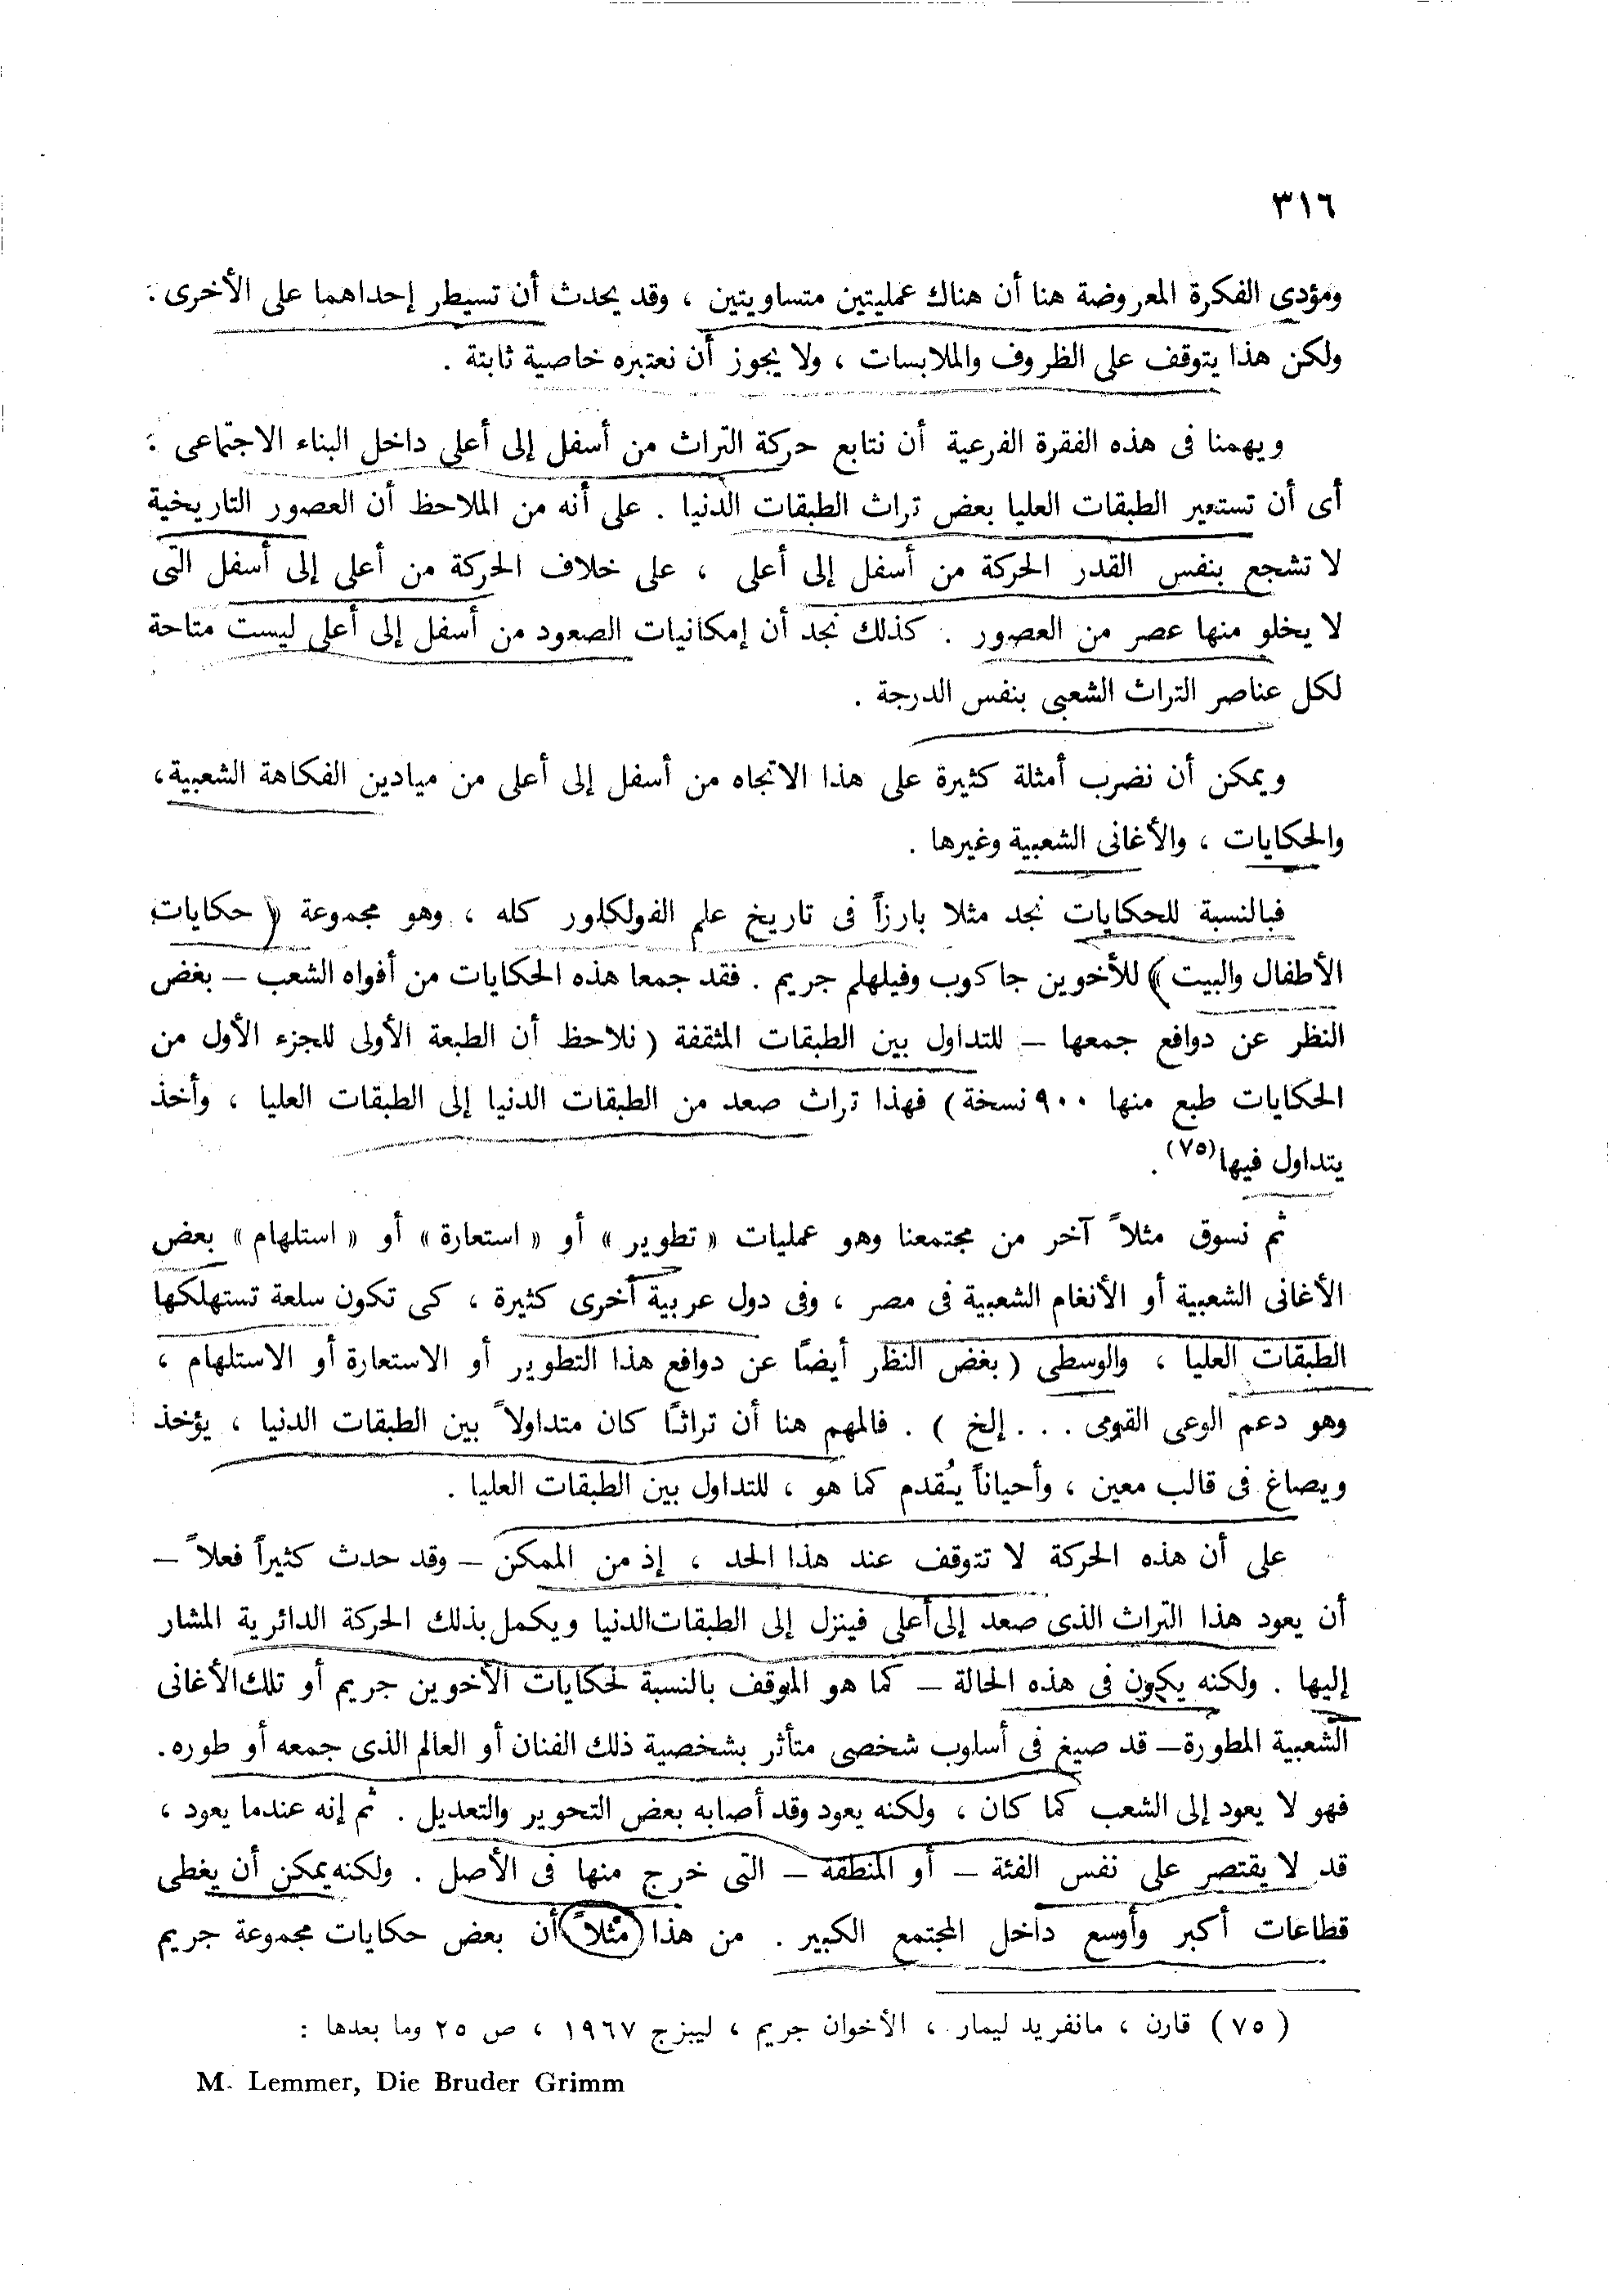 ٣١٦
ومؤدى الفكرة المعروضة هنا أن هناك عمليتين متساويتين ، وقد يحدث أن تسيطر إحداهما على الأخرى .
ولكن هذا يتوقف على الظروف والملابسات ، ولا يجوز أن نعتبره خاصية ثابتة .
ويهمنا فى هذه الفقرة الفرعية أن نتابع حركة التراث من أسفل إلى أعلى داخل البناء الاجتماعى :
أى أن تستعير الطبقات العليا بعض تراث الطبقات الدنيا . على أنه من الملاحظ أن العصور التاريخية
لا تشجع بنفس القدر الحركة من أسفل إلى أعلى ، على خلاف الحركة من أعلى إلى أسفل التى
لا يخلو منها عصر من العصور . كذلك نجد أن إمكانيات الصعود من أسفل إلى أعلى ليست متاحة
لكل عناصر التراث الشعبى بنفس الدرجة .
ويمكن أن نضرب أمثلة كثيرة على هذا الاتجاه من أسفل إلى أعلى من ميادين الفكاهة الشعبية،
والحكايات ، والأغانى الشعبية وغيرها .
فبالنسبة للحكايات نجد مثلا بارزاً فى تاريخ علم الفولكلور كله ، وهو مجموعة « حكايات
الأطفال والبيت » للأخوين جاكوب وفيلهلم جريم . فقد جمعا هذه الحكايات من أفواه الشعب – بغض
النظر عن دوافع جمعها – للتداول بين الطبقات المثقفة ( نلاحظ أن الطبعة الأولى للجزء الأول من
الحكايات طبع منها ٩٠٠ نسخة ) فهذا تراث صعد من الطبقات الدنيا إلى الطبقات العليا ، وأخذ
يتداول فيها(٧٥) .
ثم نسوق مثلاً آخر من مجتمعنا وهو عمليات « تطوير » أو « استعارة » أو « استلهام » بعض
الأغانى الشعبية أو الأنغام الشعبية فى مصر ، وفى دول عربية أخرى كثيرة ، كى تكون سلعة تستهلكها
الطبقات العليا ، والوسطى ( بغض النظر أيضًا عن دوافع هذا التطوير أو الاستعارة أو الاستلهام ،
وهو دعم الوعى القومى . . . إلخ ) . فالمهم هنا أن تراثًا كان متداولاً بين الطبقات الدنيا ، يؤخذ
ويصاغ فى قالب معين ، وأحياناً يُقدم كما هو ، للتداول بين الطبقات العليا .
على أن هذه الحركة لا تتوقف عند هذا الحد ، إذ من الممكن – وقد حدث كثيراً فعلاً –
أن يعود هذا التراث الذى صعد إلى أعلى فينزل إلى الطبقات الدنيا ويكمل بذلك الحركة الدائرية المشار
إليها . ولكنه يكون فى هذه الحالة – كما هو الموقف بالنسبة لحكايات الأخوين جريم أو تلك الأغانى
الشعبية المطورة – قد صيغ فى أسلوب شخصى متأثر بشخصية ذلك الفنان أو العالم الذى جمعه أو طوره .
فهو لا يعود إلى الشعب كما كان ، ولكنه يعود وقد أصابه بعض التحوير والتعديل . ثم إنه عندما يعود ،
قد لا يقتصر على نفس الفئة – أو المنطقة – التى خرج منها فى الأصل . ولكنه يمكن أن يغطى
قطاعات أكبر وأوسع داخل المجتمع الكبير . من هذا مثلاً أن بعض حكايات مجموعة جريم
( ٧٥ ) قارن ، مانفريد ليمار ، الأخوان جريم ، ليبزج ١٩٦٧ ، ص ٢٥ وما بعدها :
M. Lemmer, Die Bruder Grimm